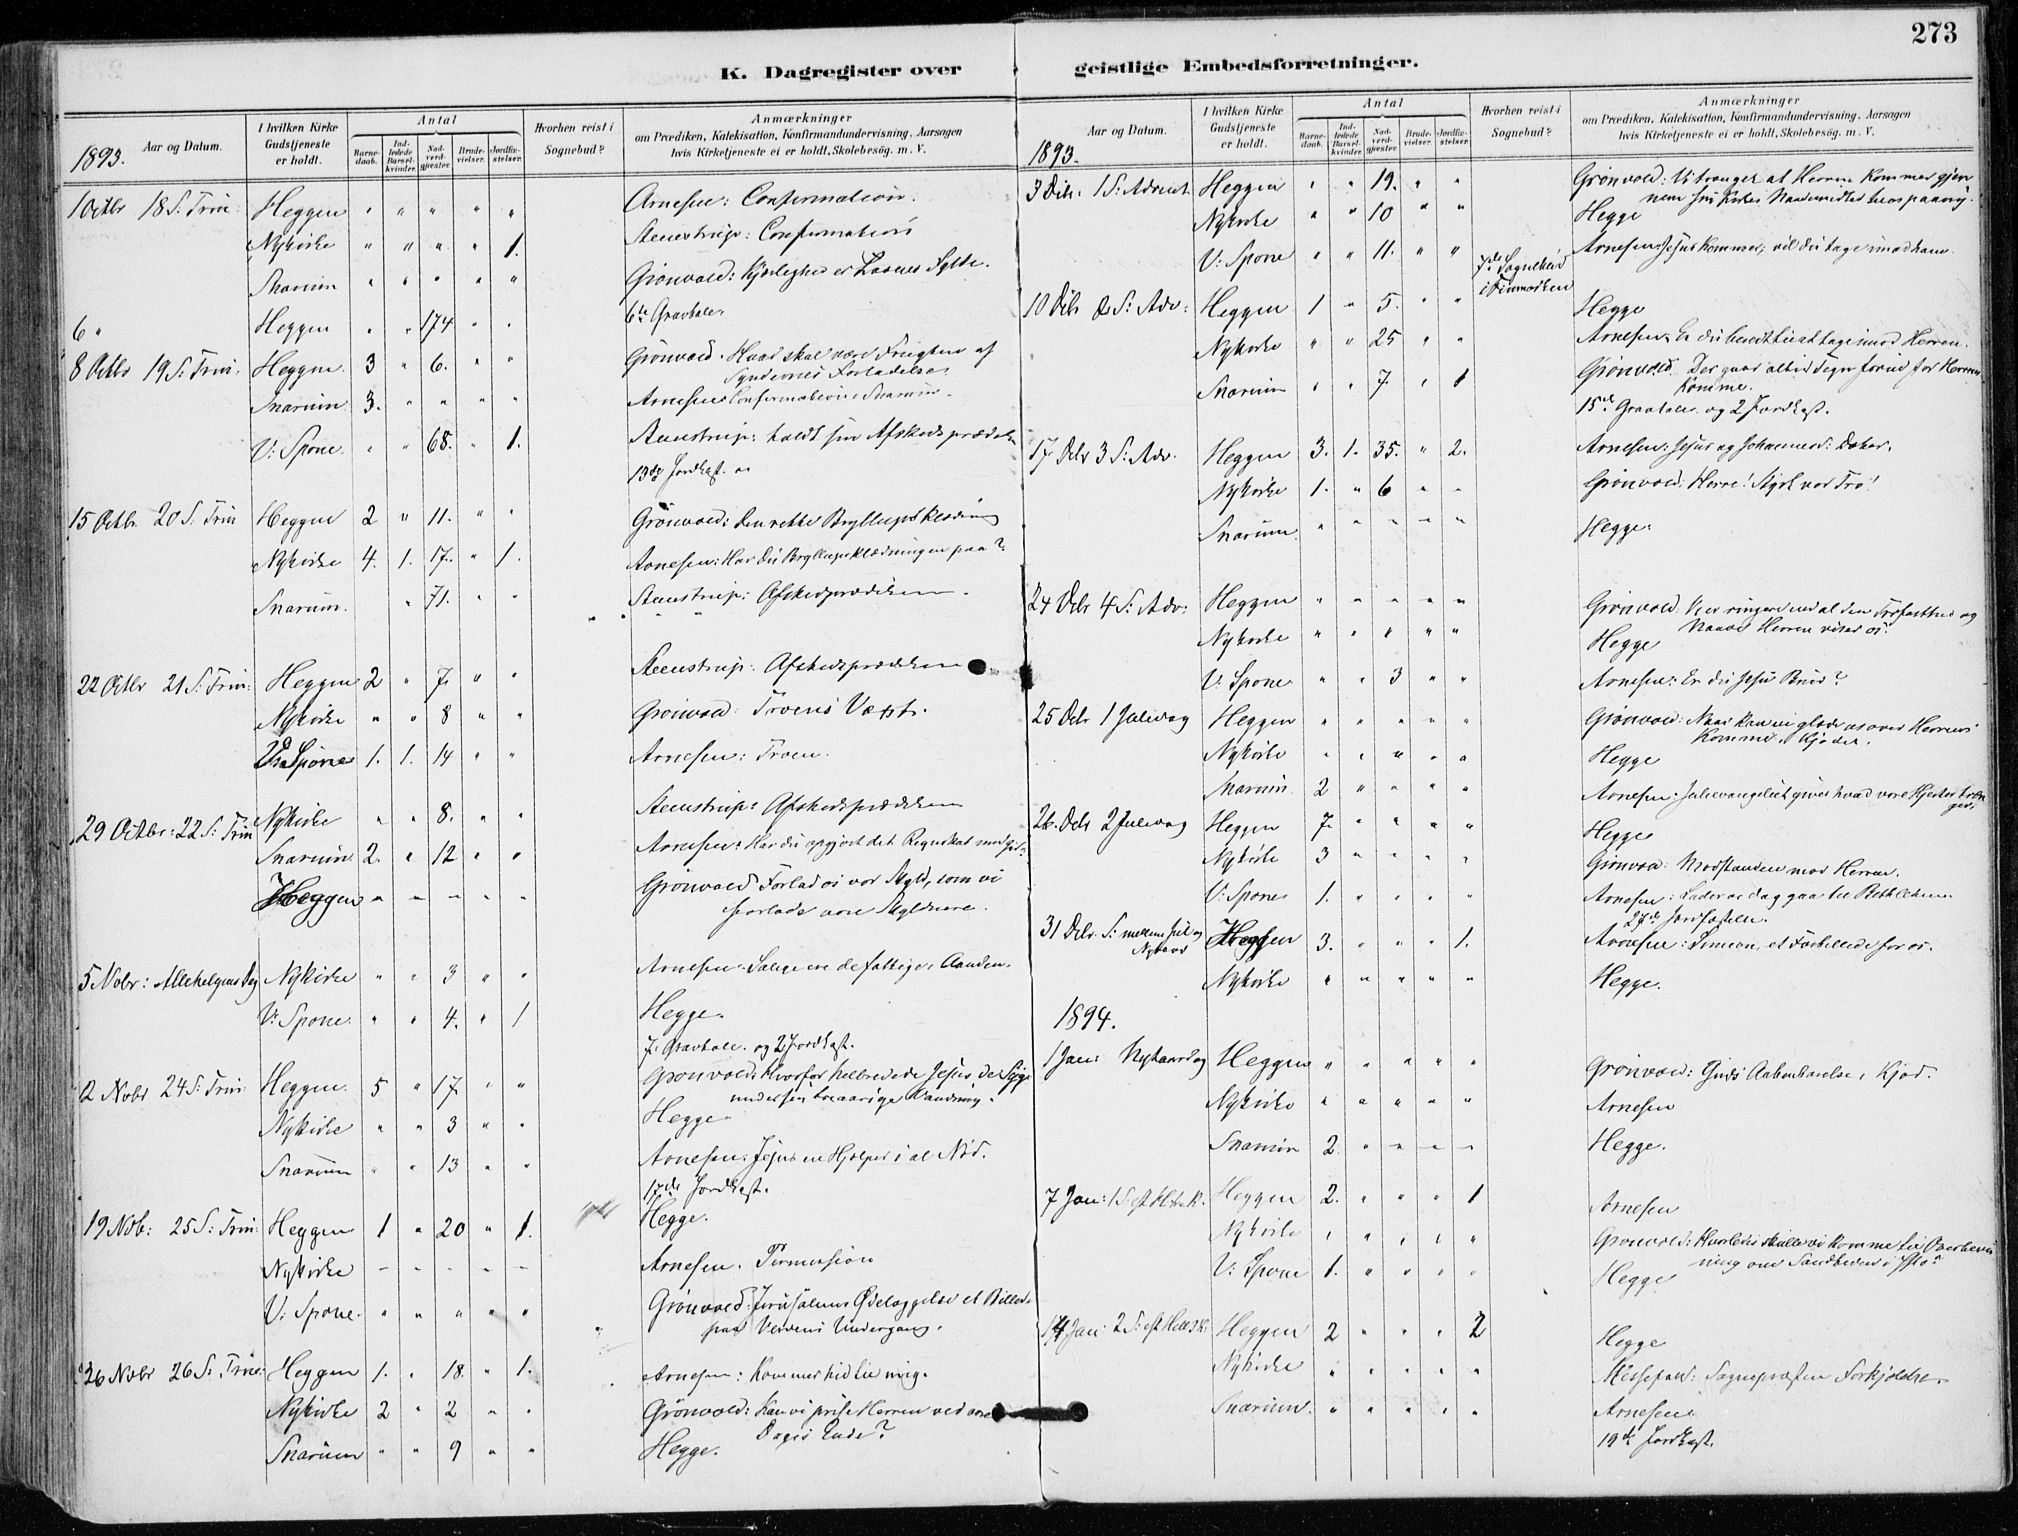 273
K. Dagregister over geistlige Embedsforretninger.
1893. Aar og Datum. I hvilken Kirke Gudstjeneste er holdt. Antal Barnedaab. Indledede Barselkvinder. Nadverdgjæster. Brudevielser. Jordfæstelser. Hvorhen reist i Sognebud? Anmærkninger om Prædiken, Katekisation, Konfirmandundervisning, Aarsagen hvis Kirketjeneste ei er holdt, Skolebesøg. m. V.
1 Octbr 18 S: Trin: Heggen " " " " " Arnesen: Confirmation.
Nykirke " " " " 1. Steenstrup: Confirmation
Snarum " " " " " Grønvold: Kjærlighed er Lovens Fylde.
6te Gravtale.
6 " Heggen " " 174 " "
8 Octbr 19 S: Trin: Heggen. 3 " 6. " " Grønvold. Hvad skal være Frugten af
Syndernes Forladelse.
Snarum 3. " " " " Arnesen Confirmation i Snarum.
V: Spone. " " 68. " 1. Steenstrup: holdt sin Afskedsprædiken
13de Jordkast.
15 Octbr. 20 S: Trin Heggen 2 " 11. " " Grønvold: Den rette Bryllupsklædning
Nykirke 4. 1. 17. " 1. Arnesen: Har du Bryllupsklædningen paa?
Snarum. " 71. " " Steenstrup: Afskedsprædiken.
22 Octbr 21 S: Trin: Heggen 2 " 7. " " Steenstrup: Afskedsprædiken
Nykirke " " 8 " " Grønvold: Troens Væxt.
V: Spone 1. 1. 14 " " Arnesen: Troen.
29 Octbr: 22 S: Trin Nykirke " " 8. " " Steenstrup: Afskedsprædiken
Snarum 2. " 12 " " Arnesen: Har du opgjort det Regnskab med
Heggen " " " " " Grønvold Forlad os vor Skyld, som vi
forlade vore Skyldnere.
5 Nobr: Allehelgens Dag Nykirke " " 3 " " Arnesen: Salige ere de fattige i Aanden.
V: Spone. " " 4. " 1 Hegge.
7. Gravtale. og 2 Jordkast.
2 Nobr 24 S: Trin: Heggen. 5 " 17. " " Grønvold: Hvorfor helbredede Jesus den Syge
under sin treaarige Vandring.
Nykirke " " 3 " " Hegge
Snarum " " 13 " " Arnesen: Jesus en Hjælper i al Nød.
17de Jordkast.
19 Nob: 25 S: Trin: Heggen 1 " 20 " 1. Hegge.
Nykirke - - - - - Arnesen.
V: Spone. " " " " " Grønvold: Jerusalems Ødelæggelse et Billede
paa Verdens Undergang.
26 Nobr 26 S: Trin: Heggen 1. " 18. " 1. Arnesen: Kommer hid til mig.
Nykirke 2 " 2 " " Grønvold: Kan vi prise Herren ved vore
Dages Ende?
Snarum " " 9 " " Hegge.
1893. Aar og Datum. I hvilken Kirke Gudstjeneste er holdt. Antal Barnedaab. Indledede Barselkvinder. Nadverdgjæster. Brudevielser. Jordfæstelser. Hvorhen reist i Sognebud? Anmærkninger om Prædiken, Katekisation, Konfirmandundervisning, Aarsagen hvis Kirketjeneste ei er holdt, Skolebesøg. m. V.
3 Dcbr. 1 S: Advent Heggen " " 19. " " Grønvold: Vi trænger at Herren kommer gjen
nem sin Kirkes Naademidler
Nykirke " " 10 " " Hegge
V: Spone " " 11. " " Arnesen: Jesus kommer; vil du tage imod ham.
7de Sognebud
10 Dcbr 2 S: Adv: Heggen 1 " 5. " " Hegge
Nykirke " " 25 " " Arnesen: Er du beredt til at tage imod Herren.
Snarum " " 7. " 1 Grønvold. Der gaar altid Tegn forud for Herrens
Komme.
15de Gravtale og 2 Jordkast.
17 Dcbr 3 S: Adv. Heggen 3. 1. 35. " 2. Arnesen: Jesus og Johannes d: Døber.
Nykirke 1. " 6 " " Grønvold: Herre! Styrk vor Tro!
Snarum. " " " " " Hegge.
24 Dcbr 4 S: Adv: Heggen " " " " " Grønvold. Vi er ringere end al den Trofasthed og
Naade Herren viser os.
Nykirke " " " " " Hegge
V: Spone " " 3 " " Arnesen: Er du Jesu Brud?
25 Dcbr 1 Juledag Heggen " " " " " Grønvold: Naar kan vi glæde os over Herrens
Komme i Kjødet.
Nykirke " " " " " Hegge
Snarum 2 " " " " Arnesen: Juleevangeliet giver hvad vore Hjerter træn
ger.
26. Dcbr 2 Juledag Heggen 7. " " " " Hegge
Nykirke 3 " " " " Grønvold: Modstanden mod Herren.
V: Spone 1. " " " " Arnesen: Lader os dog gaa til Bethlehem.
27de Jordfæstelse.
31 Dcbr. S: mellem Jul og
Nytaar Heggen 3. " " " 1. Arnesen: Simeon, et Forbillede for os.
Nykirke " " " " " Hegge.
1894.
1 Jan: Nytaarsdag Heggen " " " " " Grønvold: Guds Aabenbarelse i Kjød.
Nykirke " " " " " Arnesen
Snarum 2. " " " " Hegge.
7 Jan: 1 S. eft H. tr. K. Heggen 2. " " " 1 Arnesen
Nykirke " " " " " Grønvold: Hvorledes skulle vi komme til Overbevis
ning om Sandheden i
V: Spone 1. " " " " Hegge
14 Jan: 2 S: eft Hell 3 K: Heggen 2 " " " 2 Hegge
Nykirke " " " " " Messefald: Sognepræsten Forkjølelse.
Snarum. " " " " " Arnesen
19de Jordkast.